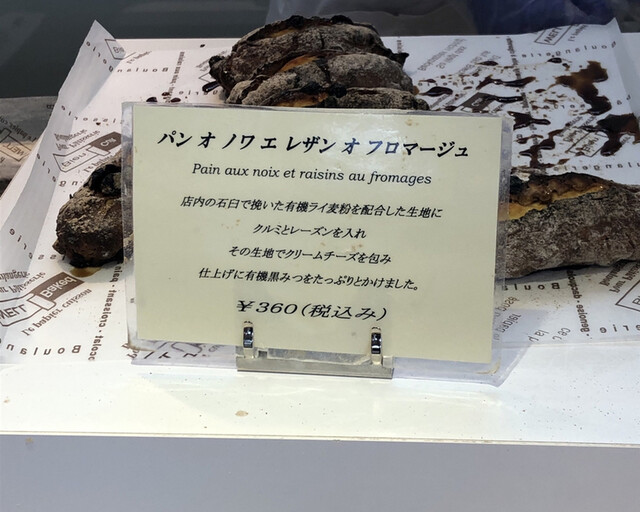 パン オ ノワ エ レザン オ フロマージュ
Pain aux noix et raisins au fromages
店内の石臼で挽いた有機ライ麦粉を配合した生地に
クルミとレーズンを入れ
その生地でクリームチーズを包み
仕上げに有機黒みつをたっぷりとかけました。
￥360(税込み)